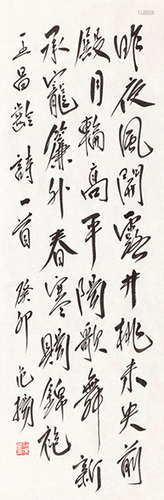 昨夜風開露井桃未央前
殿月輪高平陽歌舞新
承寵簾外春寒賜錦袍
王昌齡詩一首 癸卯